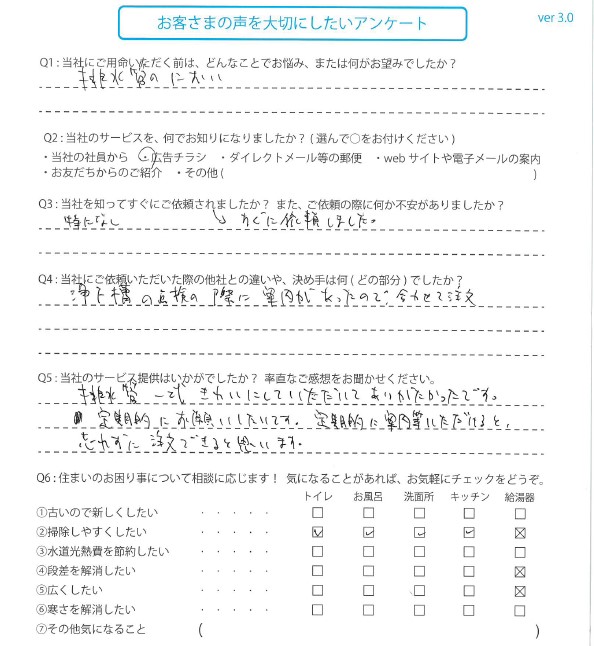 お客さまの声を大切にしたいアンケート
ver 3.0
Q1 : 当社にご用命いただく前は、どんなことでお悩み、または何がお望みでしたか？
排水管のにおい
Q2 : 当社のサービスを、何でお知りになりましたか？ ( 選んで○をお付けください )
・当社の社員から ・広告チラシ ・ダイレクトメール等の郵便 ・web サイトや電子メールの案内
・お友だちからのご紹介 ・その他 ( )
Q3 : 当社を知ってすぐにご依頼されましたか？ また、ご依頼の際に何か不安がありましたか？
特になし すぐに依頼しました。
Q4 : 当社にご依頼いただいた際の他社との違いや、決め手は何 ( どの部分 ) でしたか？
浄化槽の点検の際に案内があったので、合わせて注文
Q5 : 当社のサービス提供はいかがでしたか？ 率直なご感想をお聞かせください。
排水管一式きれいにしていただいてありがたかったです。
定期的にお願いしたいです。定期的に案内等いただけると、
忘れずに注文できると思います。
Q6 : 住まいのお困り事について相談に応じます！ 気になることがあれば、お気軽にチェックをどうぞ。
トイレ お風呂 洗面所 キッチン 給湯器
①古いので新しくしたい ・・・・・ □ □ □ □ □
②掃除しやすくしたい ・・・・・ ☑ ☑ ☑ ☑ ☒
③水道光熱費を節約したい ・・・・・ □ □ □ □ □
④段差を解消したい ・・・・・ □ □ □ □ ☒
⑤広くしたい ・・・・・ □ □ □ □ ☒
⑥寒さを解消したい ・・・・・ □ □ □ □ □
⑦その他気になること ( )